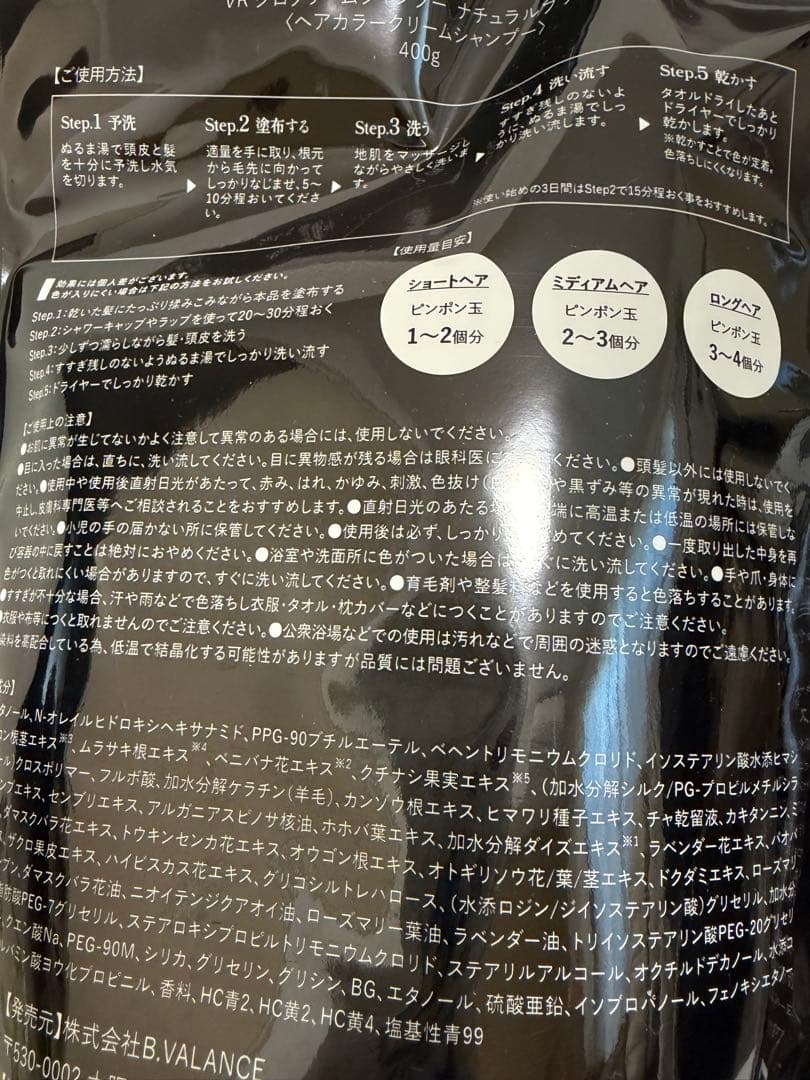 ナチュラル
〈ヘアカラークリームシャンプー〉
400g
【ご使用方法】
Step.1 予洗
ぬるま湯で頭皮と髪
を十分に予洗し水気
を切ります。
Step.2 塗布する
適量を手に取り、根元
から毛先に向かって
しっかりなじませ、5〜
10分程おいてくださ
い。
Step.3 洗う
地肌をマッサージし
ながらやさしく洗いま
す。
Step.4 洗い流す
すすぎ残しのないよ
うに、ぬるま湯でしっ
かり洗い流します。
Step.5 乾かす
タオルドライしたあと
ドライヤーでしっかり
乾かします。
※乾かすことで色が定着。
色落ちしにくくなります。
※使い始めの3日間はStep2で15分程おく事をおすすめします。
効果には個人差がございます。
色が入りにくい場合は下記の方法をお試しください。
Step.1：乾いた髪にたっぷり揉みこみながら本品を塗布する
Step.2：シャワーキャップやラップを使って20〜30分程おく
Step.3：少しずつ濡らしながら髪・頭皮を洗う
Step.4：すすぎ残しのないようぬるま湯でしっかり洗い流す
Step.5：ドライヤーでしっかり乾かす
【使用量目安】
ショートヘア
ピンポン玉
1〜2個分
ミディアムヘア
ピンポン玉
2〜3個分
ロングヘア
ピンポン玉
3〜4個分
【ご使用上の注意】
●お肌に異常が生じてないかよく注意して異常のある場合には、使用しないでください。
●目に入った場合は、直ちに、洗い流してください。目に異物感が残る場合は眼科医に ください。●頭髪以外には使用しないでく
ださい。●使用中や使用後直射日光があたって、赤み、はれ、かゆみ、刺激、色抜け や黒ずみ等の異常が現れた時は、使用を
中止し、皮膚科専門医等へご相談されることをおすすめします。●直射日光のあたる場 端に高温または低温の場所には保管しな
いでください。●小児の手の届かない所に保管してください。●使用後は必ず、しっかり めてください。●一度取り出した中身を再
び容器の中に戻すことは絶対におやめください。●浴室や洗面所に色がついた場合は ぐに洗い流してください。●手や爪・身体に
色がつくと取れにくい場合がありますので、すぐに洗い流してください。●育毛剤や整髪 などを使用すると色落ちすることがあります。
●すすぎが不十分な場合、汗や雨などで色落ちし衣服・タオル・枕カバーなどにつくことがありますのでご注意ください。
●衣服や布等につくと取れませんのでご注意ください。●公衆浴場などでの使用は汚れなどで周囲の迷惑となりますのでご遠慮ください。
染料を高配合している為、低温で結晶化する可能性がありますが品質には問題ございません。
成分】
タノール、N-オレイルヒドロキシヘキサナミド、PPG-90ブチルエーテル、ベヘントリモニウムクロリド、イソステアリン酸水添ヒマシ
ン根茎エキス※3、ムラサキ根エキス※4、ベニバナ花エキス※2、クチナシ果実エキス※5、(加水分解シルク/PG-プロピルメチルシラ
ール)クロスポリマー、フルボ酸、加水分解ケラチン(羊毛)、カンゾウ根エキス、ヒマワリ種子エキス、チャ乾留液、カキタンニン、ミ
ンブエキス、センブリエキス、アルガニアスピノサ核油、ホホバ葉エキス、加水分解ダイズエキス※1、ラベンダー花エキス、ハナハ
ダマスクバラ花エキス、トウキンセンカ花エキス、オウゴン根エキス、オトギリソウ花/葉/茎エキス、ドクダミエキス、ローズマリー
ス、ザクロ果皮エキス、ハイビスカス花エキス、グリコシルトレハロース、(水添ロジン/ジイソステアリン酸)グリセリル、加水分
ブン、ダマスクバラ花油、ニオイテンジクアオイ油、ローズマリー葉油、ラベンダー油、トリイソステアリン酸PEG-20グリセリ
脂肪酸PEG-7グリセリル、ステアロキシプロピルトリモニウムクロリド、ステアリルアルコール、オクチルドデカノール、水添コ
、クエン酸Na、PEG-90M、シリカ、グリセリン、グリシン、BG、エタノール、硫酸亜鉛、イソプロパノール、フェノキシエタノー
ルバミン酸ヨウ化プロピニル、香料、HC青2、HC黄2、HC黄4、塩基性青99
【発売元】株式会社B.VALANCE
〒530-0002